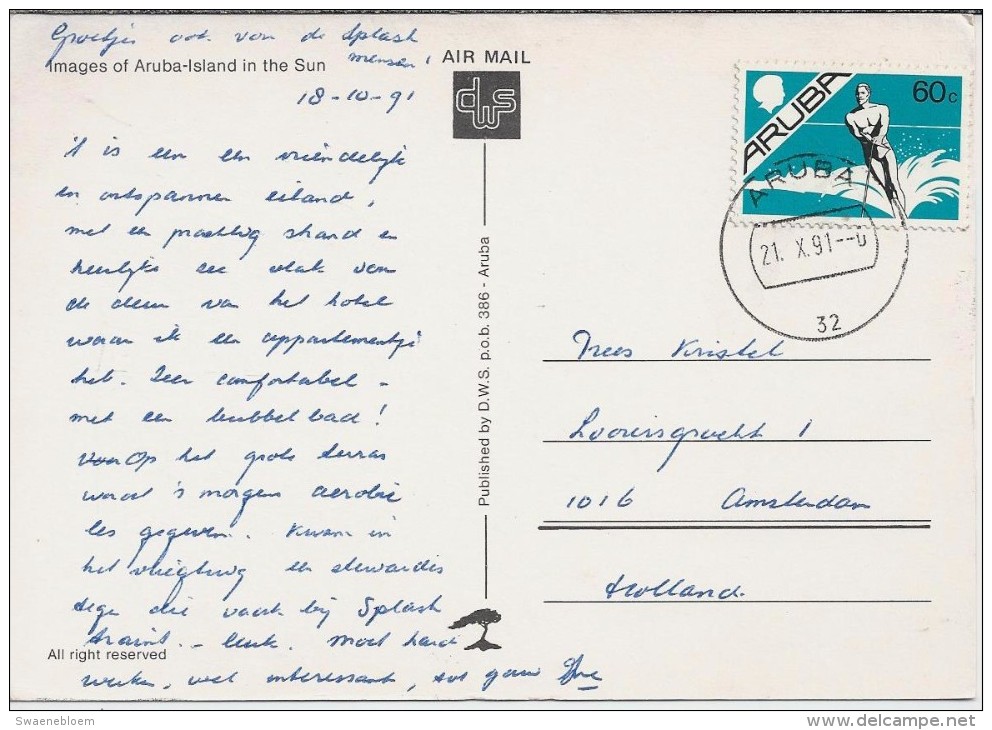 Groetjes ook van de Splash
mensen!
Images of Aruba-Island in the Sun
18-10-91
't is een een vriendelijke
en ontspannen eiland,
met een prachtig strand en
heerlijke zee vlak van
de deur van het hotel
waar ik een appartementje
heb. Zeer comfortabel -
met een bubbel bad!
Op het grote terras
wordt 's morgens aerobic
les gegeven. Kwam in
het vliegtuig een stewardes
tegen die vaak bij Splash
traint. - leuk. Moet hard
werken, wel interessant, tot gauw
All right reserved
AIR MAIL
dws
Published by D.W.S. p.o.b. 386 - Aruba
ARUBA
60c
ARUBA
21. X.91--
32
Trees Kristel
Looiersgracht 1
1016 Amsterdam
Holland.
Swaenebloem
www.delcampe.net